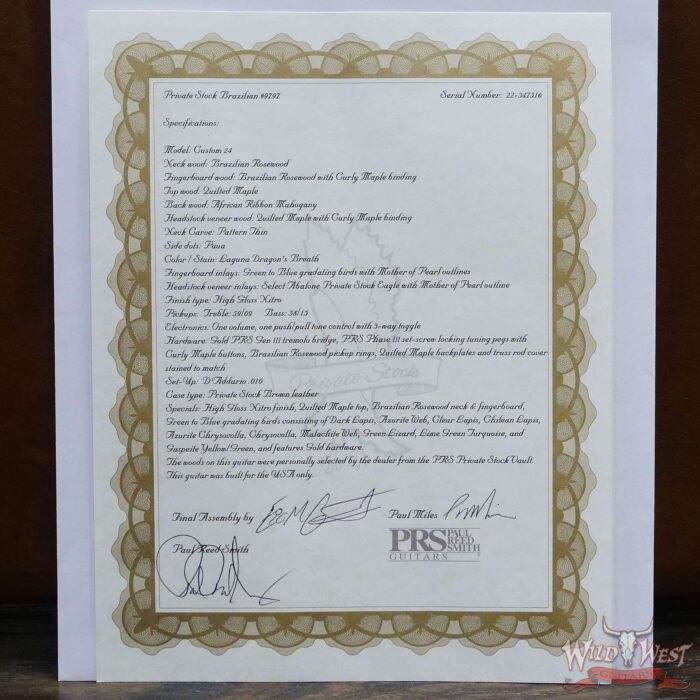 Private Stock Brazilian #9797 Serial Number: 22-347316
Specifications:
Model: Custom 24
Neck wood: Brazilian Rosewood
Fingerboard wood: Brazilian Rosewood with Curly Maple binding
Top wood: Quilted Maple
Back wood: African Ribbon Mahogany
Headstock veneer wood: Quilted Maple with Curly Maple binding
Neck Carve: Pattern Thin
Side dots: Paua
Color / Stain: Laguna Dragon's Breath
Fingerboard inlays: Green to Blue gradating birds with Mother of Pearl outlines
Headstock veneer inlays: Select Abalone Private Stock Eagle with Mother of Pearl outline
Finish type: High Gloss Nitro
Pickups: Treble: 59/09 Bass: 58/15
Electronics: One volume, one push/pull tone control with 3-way toggle
Hardware: Gold PRS Gen III tremolo bridge, PRS Phase III set-screw locking tuning pegs with
Curly Maple buttons, Brazilian Rosewood pickup rings, Quilted Maple backplates and truss rod cover
stained to match
Private Stock
Set-Up: D'Addario .010
Case type: Private Stock Brown leather
Specials: High Gloss Nitro finish, Quilted Maple top, Brazilian Rosewood neck & fingerboard,
Green to Blue gradating birds consisting of Dark Lapis, Azurite Web, Clear Lapis, Chilean Lapis,
Azurite Chrysocolla, Chrysocolla, Malachite Web, Green Lizard, Lime Green Turquoise, and
Gaspeite Yellow/Green, and features Gold hardware.
The woods on this guitar were personally selected by the dealer from the PRS Private Stock Vault.
This guitar was built for the USA only.
Final Assembly by Paul Miles
Paul Reed Smith
PRS PAUL REED SMITH
GUITARS
WILD WEST
GUITARS